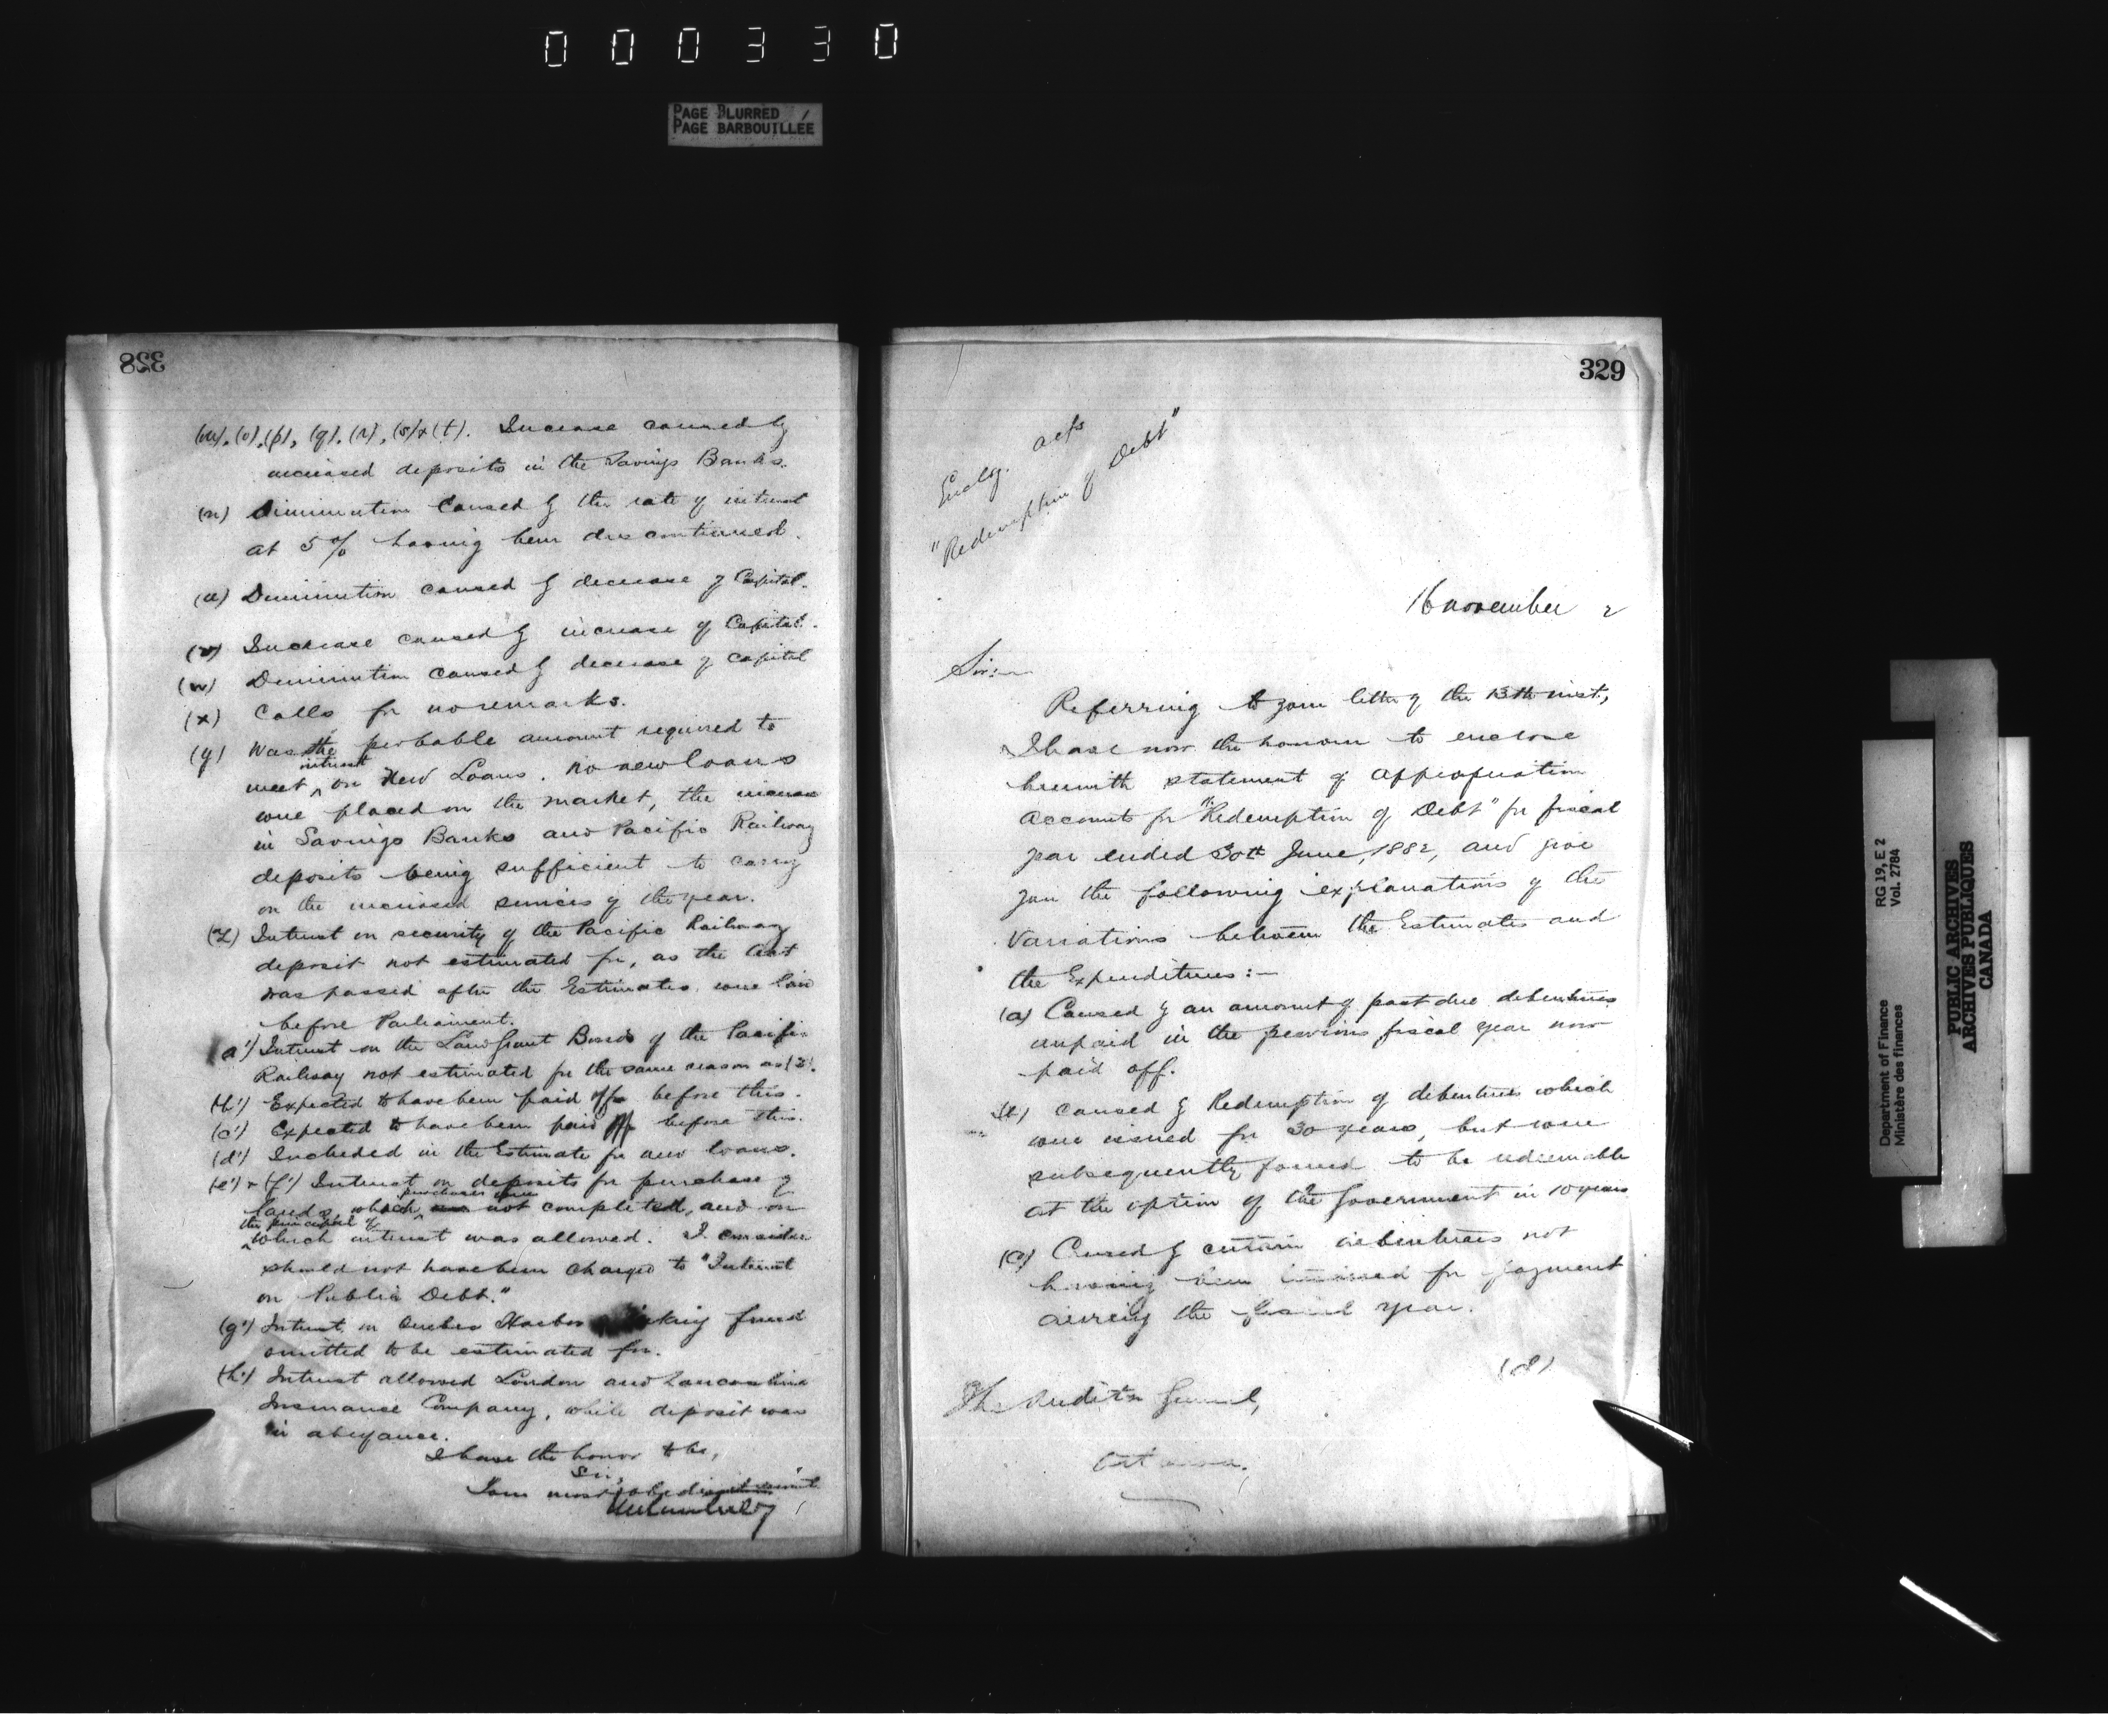 000330
PAGE BLURRED
PAGE BARBOUILLÉE
328
(m), (o), (p), (q), (r), (s) & (t). Increase caused by
increased deposits in the Savings Banks.
(n) Diminution caused by the rate of interest
at 5% having been discontinued.
(u) Diminution caused by decrease of Capital.
(v) Increase caused by increase of Capital.
(w) Diminution caused by decrease of Capital
(x) Calls for no remarks.
(y) Was the probable amount required to
meet interest on New Loans. No new loans
were placed on the market, the increase
in Savings Banks and Pacific Railway
deposits being sufficient to carry
on the increased services of the year.
(z) Interest on security of the Pacific Railway
deposit not estimated for, as the Act
was passed after the Estimates were laid
before Parliament.
(a') Interest on the Land Grant Bonds of the Pacific
Railway not estimated for the same reason as (z).
(b') Expected to have been paid off before this.
(c') Expected to have been paid off before this.
(d') Included in the Estimate for new loans.
(e') & (f') Interest on deposits for purchase of
lands, which purchases were not completed, and on
the principal of which interest was allowed. I consider
should not have been charged to "Interest
on Public Debt."
(g') Interest on Quebec Harbor Sinking fund
omitted to be estimated for.
(h') Interest allowed London and Lancashire
Insurance Company, while deposit was
in abeyance.
I have the honor to be,
Sir,
Your most obedient servant
329
Enclg. a/cs
"Redemption of Debt"
16 November 2
Sir:
Referring to your letter of the 13th inst.,
I have now the honour to enclose
herewith statement of Appropriation
Account for "Redemption of Debt" for fiscal
year ended 30th June, 1882, and give
you the following explanations of the
variations between the Estimates and
the Expenditures:—
(a) Caused by an amount of past due debentures
unpaid in the previous fiscal year now
paid off.
(b) Caused by Redemption of debentures which
were issued for 30 years, but were
subsequently found to be redeemable
at the option of the Government in 10 years
(c) Caused by certain debentures not
having been for payment
during the fiscal year.
(d)
The Auditor General,
Ottawa.
Department of Finance
Ministère des finances
RG 19, E 2
Vol. 2784
PUBLIC ARCHIVES
ARCHIVES PUBLIQUES
CANADA